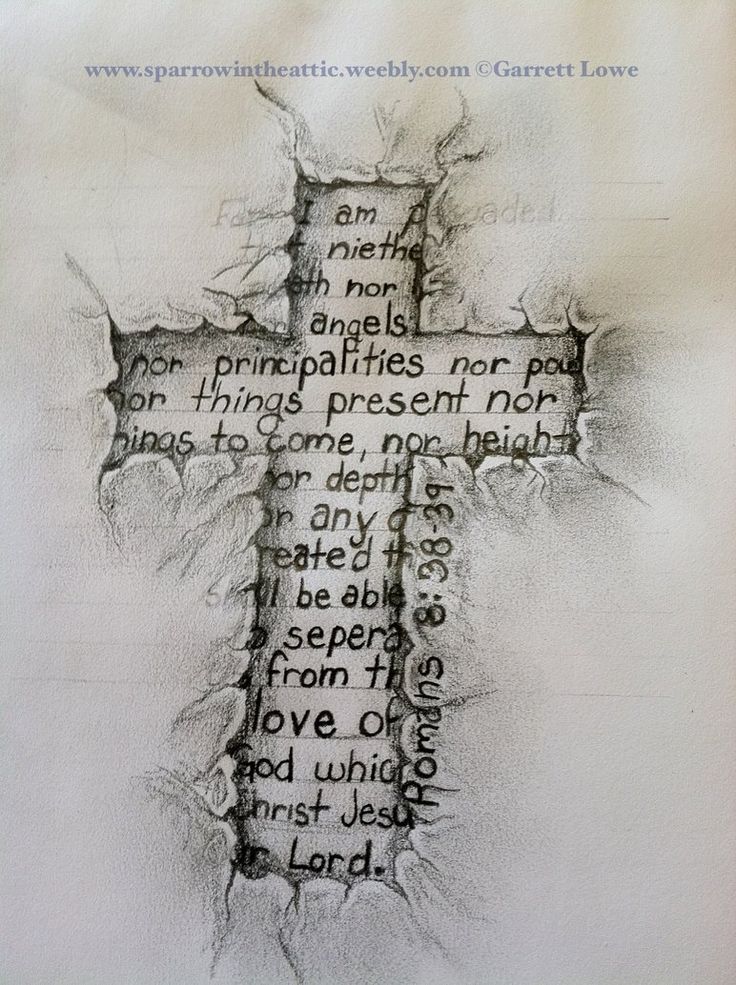 www.sparrowintheattic.weebly.com ©Garrett Lowe
For I am persuaded
that niethe
eth nor
nor angels
nor principalities nor pow
nor things present nor
hings to come, nor height
nor depth
or any o
reated th
shall be able
o sepera
from th
love of
God which
Christ Jesu
ur Lord.
Romans 8:38-39